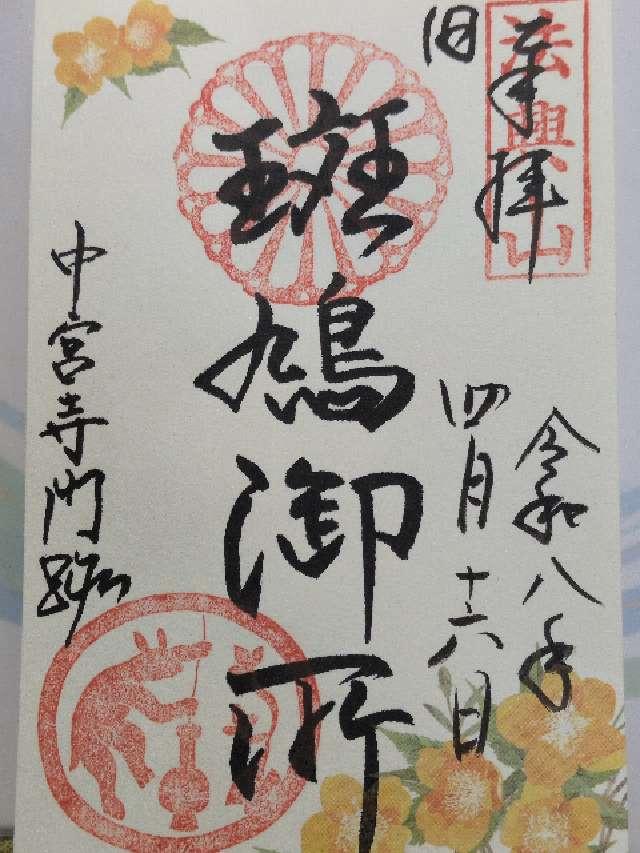 奉拝
法興山
旧
令和八年
四月十六日
斑鳩御所
中宮寺門跡